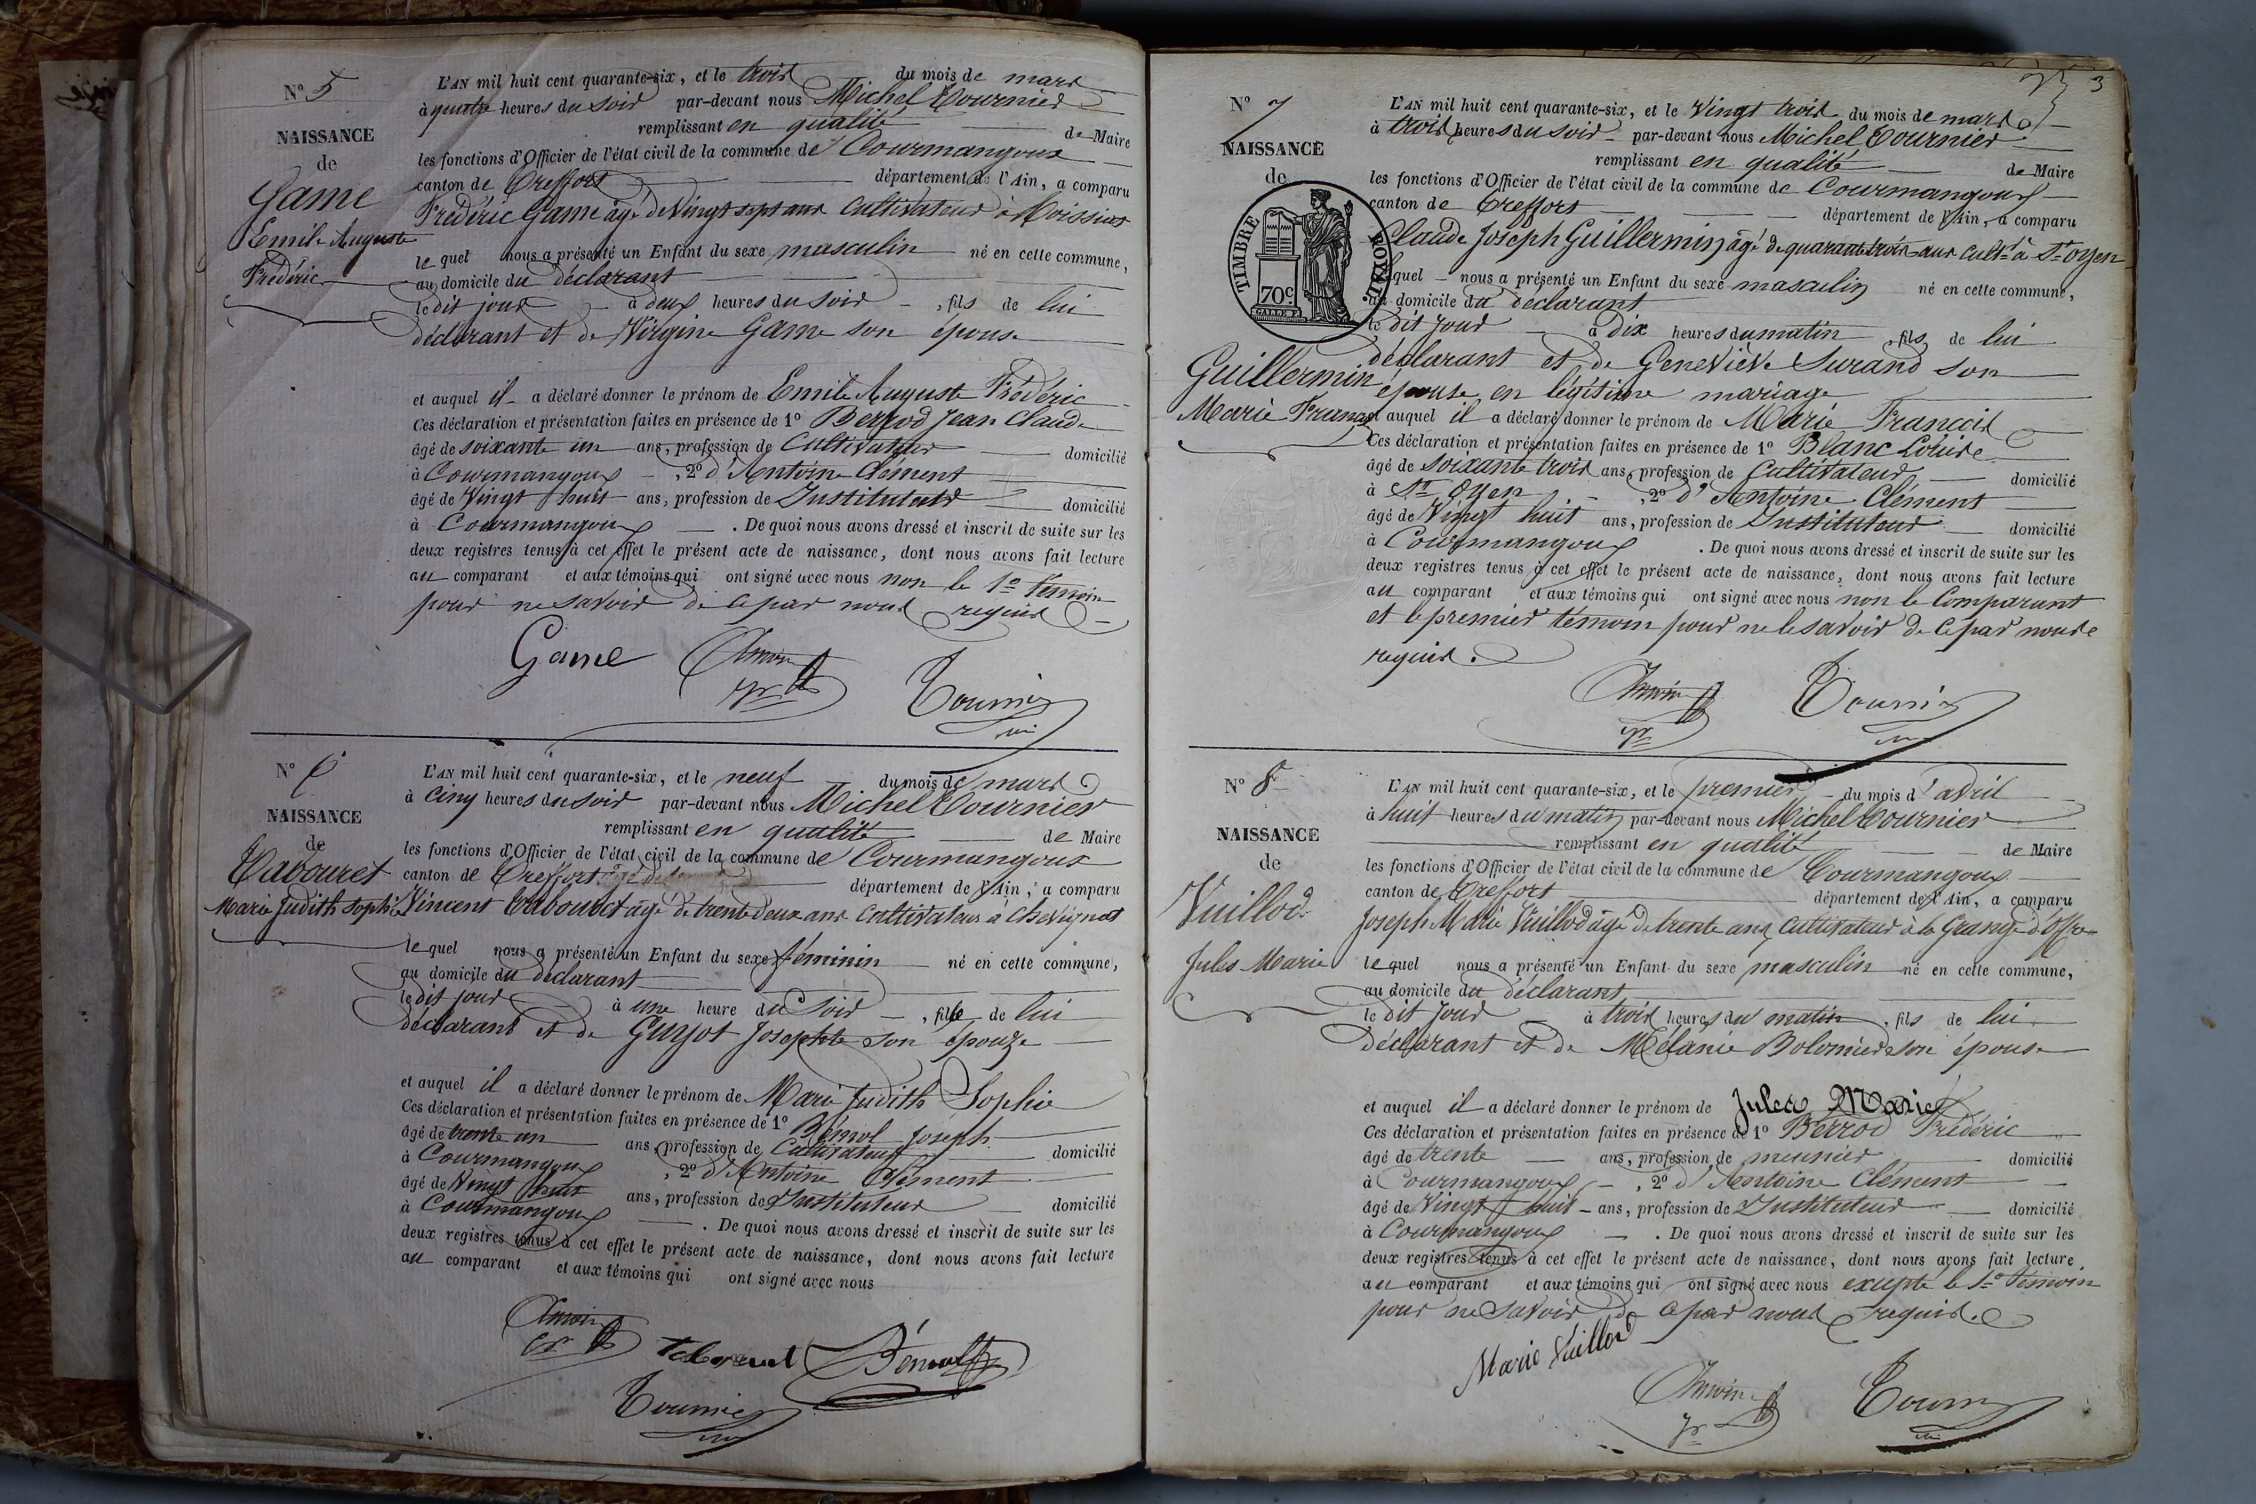 N° 5
NAISSANCE
de
Game
Emile Auguste
Frédéric
L'AN mil huit cent quarante-six, et le trois du mois de mars
à quatre heures du soir par-devant nous Michel Tournier
remplissant en qualité de Maire
les fonctions d'Officier de l'état civil de la commune de Courmangoux
canton de Treffort département de l'Ain, a comparu
Frédéric Game âgé de vingt sept ans cultivateur à Roissiat
lequel nous a présenté un Enfant du sexe masculin né en cette commune,
au domicile du déclarant
le dit jour à deux heures du soir, fils de lui
déclarant et de Virginie Game son épouse
et auquel il a déclaré donner le prénom de Emile Auguste Frédéric
Ces déclaration et présentation faites en présence de 1° Berrod Jean Claude
âgé de soixante un ans, profession de Cultivateur domicilié
à Courmangoux, 2° d'Antoine Clément
âgé de Vingt huit ans, profession de Instituteur domicilié
à Courmangoux. De quoi nous avons dressé et inscrit de suite sur les
deux registres tenus à cet effet le présent acte de naissance, dont nous avons fait lecture
au comparant et aux témoins qui ont signé avec nous non le 1er témoin
pour ne savoir de ce par nous requis
Game
Tournier
N° 6
NAISSANCE
de
Tabouret
Marie Judith Sophie
L'AN mil huit cent quarante-six, et le neuf du mois de mars
à cinq heures du soir par-devant nous Michel Tournier
remplissant en qualité de Maire
les fonctions d'Officier de l'état civil de la commune de Courmangoux
canton de Treffort département de l'Ain, a comparu
Vincent Tabouret âgé de trente deux ans cultivateur à Chevignat
lequel nous a présenté un Enfant du sexe féminin né en cette commune,
au domicile du déclarant
le dit jour à une heure du soir, fille de lui
déclarant et de Guyot Josephte son épouze
et auquel il a déclaré donner le prénom de Marie Judith Sophie
Ces déclaration et présentation faites en présence de 1° Joseph
âgé de trente un ans, profession de Cultivateur domicilié
à Courmangoux, 2° d'Antoine Clément
âgé de Vingt huit ans, profession de Instituteur domicilié
à Courmangoux. De quoi nous avons dressé et inscrit de suite sur les
deux registres tenus à cet effet le présent acte de naissance, dont nous avons fait lecture
au comparant et aux témoins qui ont signé avec nous
Tournier
3
N° 7
NAISSANCE
de
TIMBRE ROYAL
70c
Guillermin
Marie François
L'AN mil huit cent quarante-six, et le Vingt trois du mois de mars
à trois heures du soir par-devant nous Michel Tournier
remplissant en qualité de Maire
les fonctions d'Officier de l'état civil de la commune de Courmangoux
canton de Treffort département de l'Ain, a comparu
Claude Joseph Guillermin âgé de quarante trois ans cultr à St Oyen
lequel nous a présenté un Enfant du sexe masculin né en cette commune,
au domicile du déclarant
le dit jour à dix heures du matin, fils de lui
déclarant et de Geneviève Surand son
épouse en légitime mariage
et auquel il a déclaré donner le prénom de Marie François
Ces déclaration et présentation faites en présence de 1° Blanc Louis
âgé de soixante trois ans, profession de Cultivateur domicilié
à St Oyen, 2° d'Antoine Clément
âgé de Vingt huit ans, profession de Instituteur domicilié
à Courmangoux. De quoi nous avons dressé et inscrit de suite sur les
deux registres tenus à cet effet le présent acte de naissance, dont nous avons fait lecture
au comparant et aux témoins qui ont signé avec nous non le Comparant
et le premier témoin pour ne le savoir de ce par nous
requis.
Tournier
N° 8
NAISSANCE
de
Vuillod
Jules Marie
L'AN mil huit cent quarante-six, et le premier du mois d'avril
à huit heures du matin par-devant nous Michel Tournier
remplissant en qualité de Maire
les fonctions d'Officier de l'état civil de la commune de Courmangoux
canton de Treffort département de l'Ain, a comparu
Joseph Marie Vuillod âgé de trente ans, cultivateur à la Grange
lequel nous a présenté un Enfant du sexe masculin né en cette commune,
au domicile du déclarant
le dit jour à trois heures du matin, fils de lui
déclarant et de Mélanie Bolomier son épouse
et auquel il a déclaré donner le prénom de Jules Marie
Ces déclaration et présentation faites en présence de 1° Berrod Frédéric
âgé de trente ans, profession de meunier domicilié
à Courmangoux, 2° d'Antoine Clément
âgé de Vingt huit ans, profession de Instituteur domicilié
à Courmangoux. De quoi nous avons dressé et inscrit de suite sur les
deux registres tenus à cet effet le présent acte de naissance, dont nous avons fait lecture
au comparant et aux témoins qui ont signé avec nous excepté le 1er témoin
pour ne savoir de ce par nous requis.
Marie Vuillod
Tournier